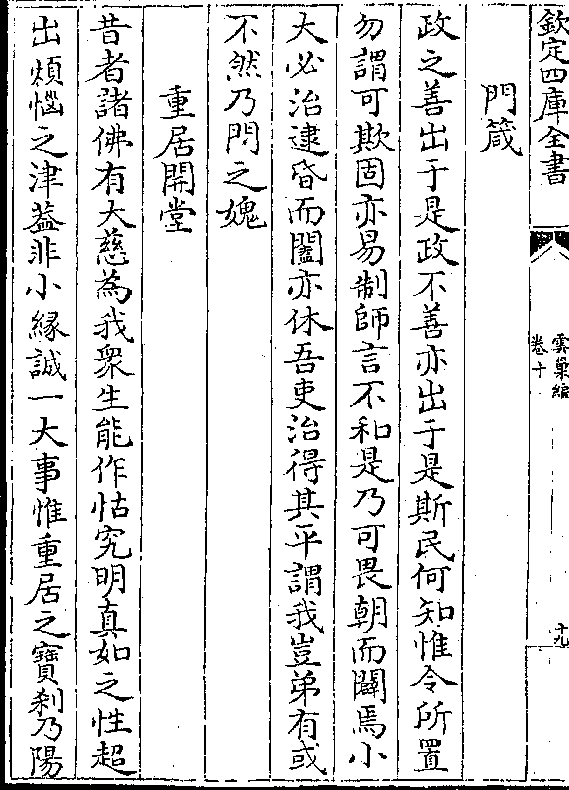 欽定四庫全書
雲巢編
卷十
十九
門箴
政之善出于是政不善亦出于是斯民何知惟令所置
勿謂可欺固亦易制師言不和是乃可畏朝而闢焉小
大必治逮昏而闔亦休吾吏治得其平謂我豈弟有或
不然乃門之媿
重居開堂
昔者諸佛有大慈為我衆生能作怙究明真如之性超
出煩惱之津葢非小緣誠一大事惟重居之寶刹乃陽